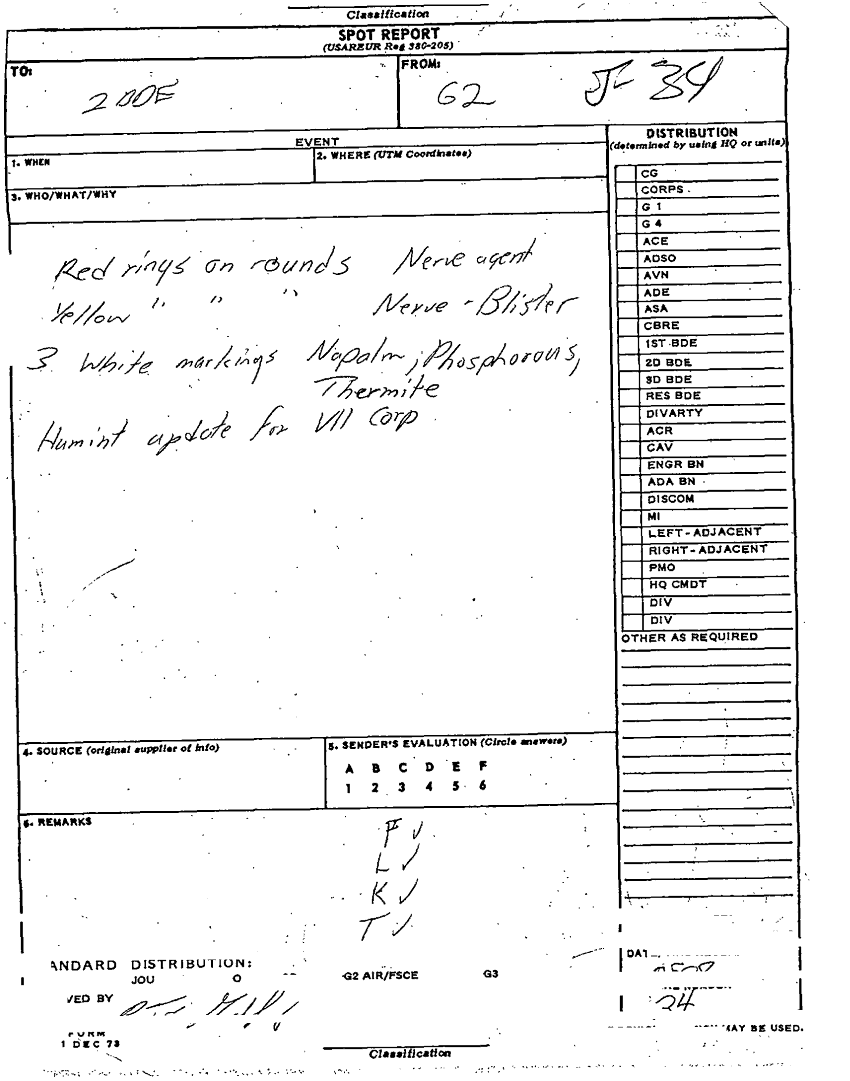 Classification
SPOT REPORT
(USAREUR Reg 380-205)
TO: 2 BDE
FROM: G2 J-34
EVENT
1. WHEN
2. WHERE (UTM Coordinates)
3. WHO/WHAT/WHY
Red rings on rounds Nerve agent
Yellow " " " Nerve - Blister
3 White markings Napalm, Phosphorous,
Thermite
Humint update for VII Corp
4. SOURCE (original supplier of info)
5. SENDER'S EVALUATION (Circle answers)
A B C D E F
1 2 3 4 5 6
6. REMARKS
F ✓
L ✓
K ✓
T ✓
DISTRIBUTION
(determined by using HQ or units)
CG
CORPS
G 1
G 4
ACE
ADSO
AVN
ADE
ASA
CBRE
1ST BDE
2D BDE
3D BDE
RES BDE
DIVARTY
ACR
CAV
ENGR BN
ADA BN
DISCOM
MI
LEFT-ADJACENT
RIGHT-ADJACENT
PMO
HQ CMDT
DIV
DIV
OTHER AS REQUIRED
ANDARD DISTRIBUTION:
JOU O G2 AIR/FSCE G3
VED BY
DAT
34
FORM
1 DEC 73
MAY BE USED.
Classification